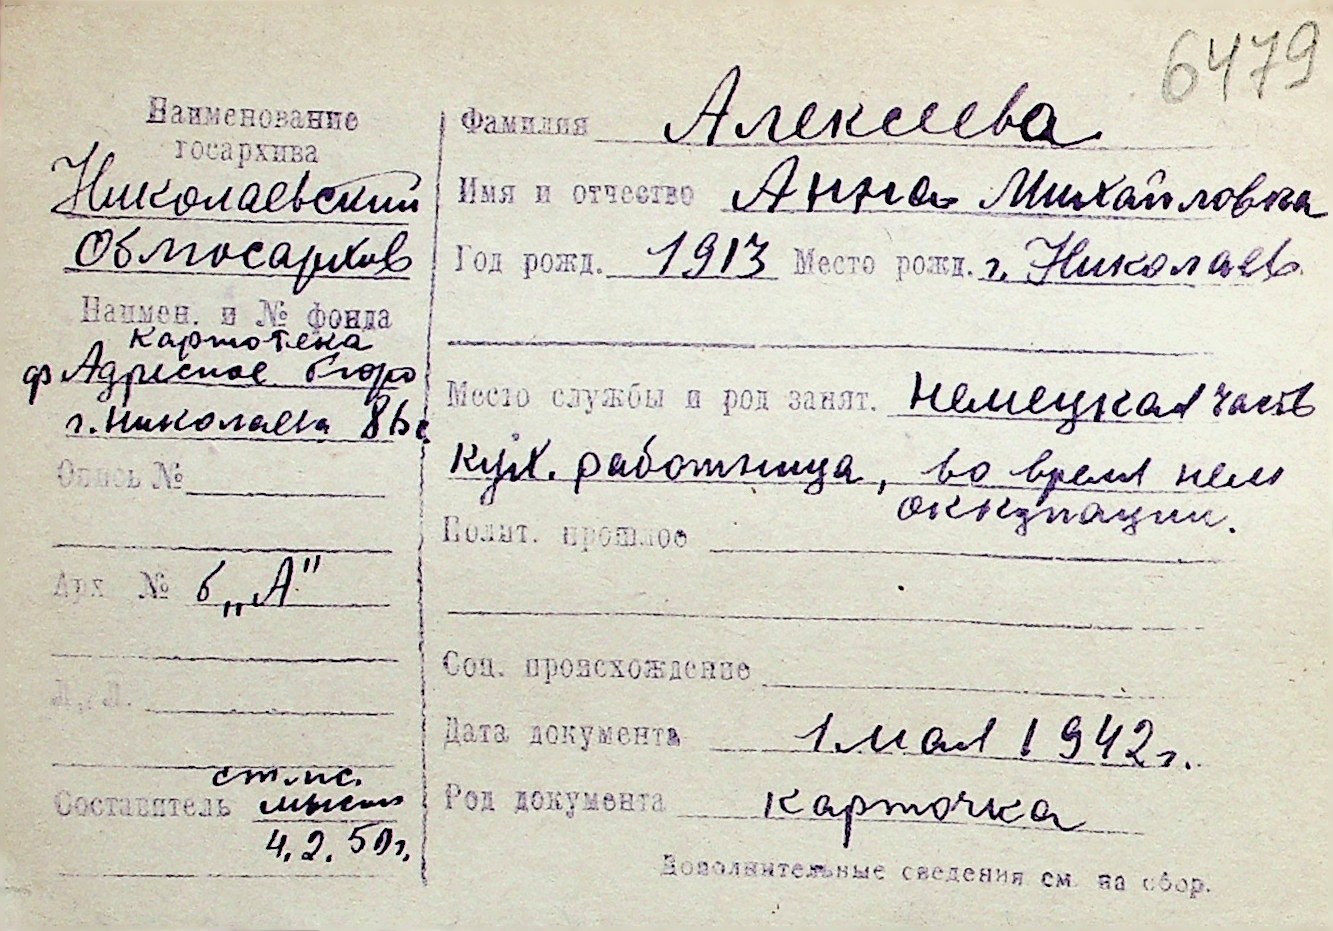 6479
Наименование
госархива
Николаевский
Облгосархив
Наимен. и № фонда
картотека
ф Адресное бюро
г. Николаева
Опись №
Арх. № б „А"
Л., Л.
Составитель
4.2.50г.
Фамилия Алексеева
Имя и отчество Анна Михайловна
Год рожд. 1913 Место рожд. г. Николаев
Место службы и род занят. немецкая часть
кух. работница, во время нем
оккупации.
Полит. прошлое
Соц. происхождение
Дата документа 1 мая 1942г.
Род документа карточка
Дополнительные сведения см. на обор.